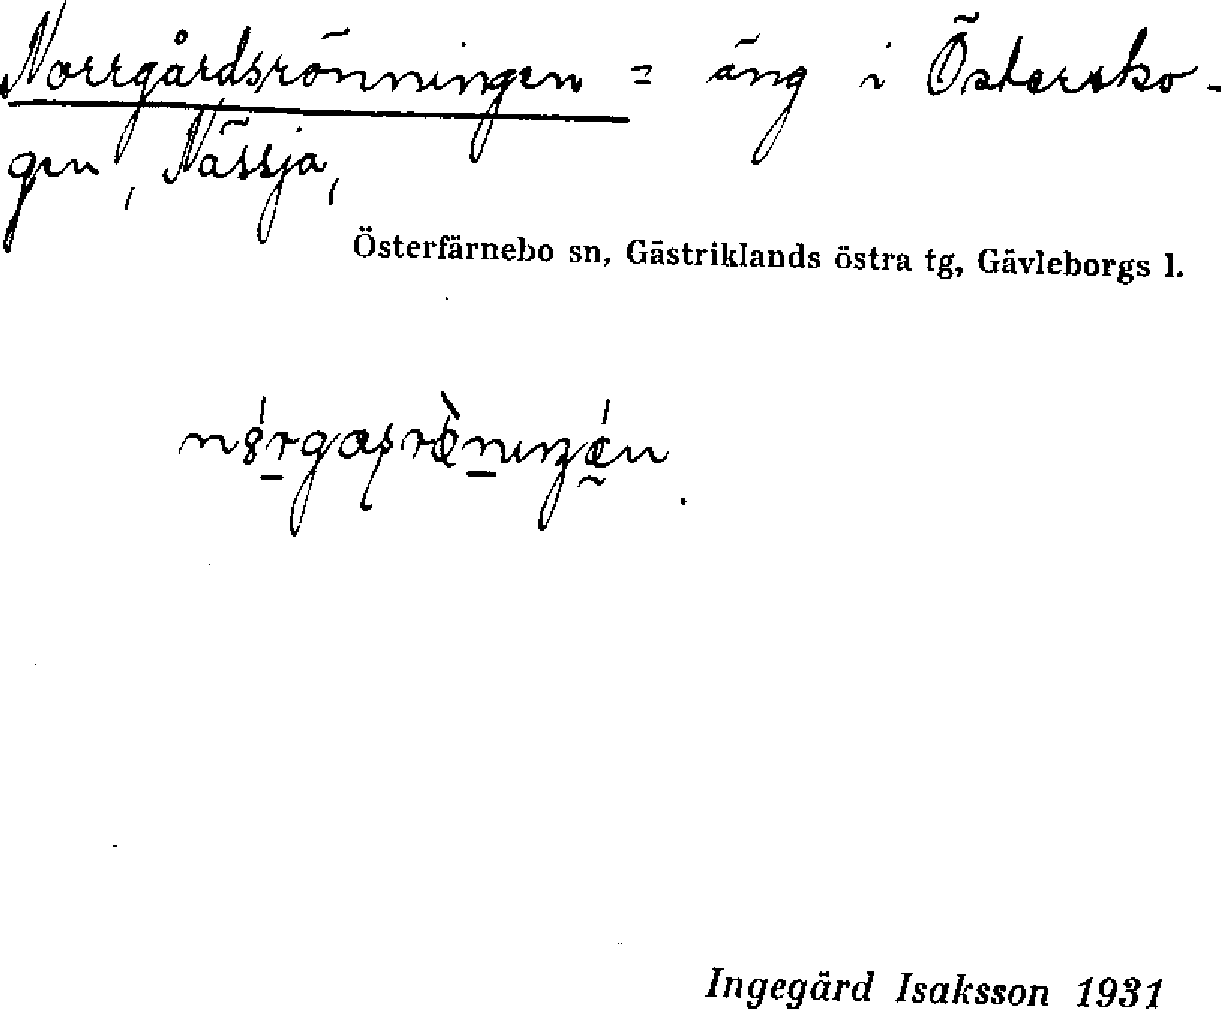 Norrgårdsrönningen = äng i Östersko-
gen, Nässja,
Österfärnebo sn, Gästriklands östra tg, Gävleborgs l.
Ingegärd Isaksson 1931